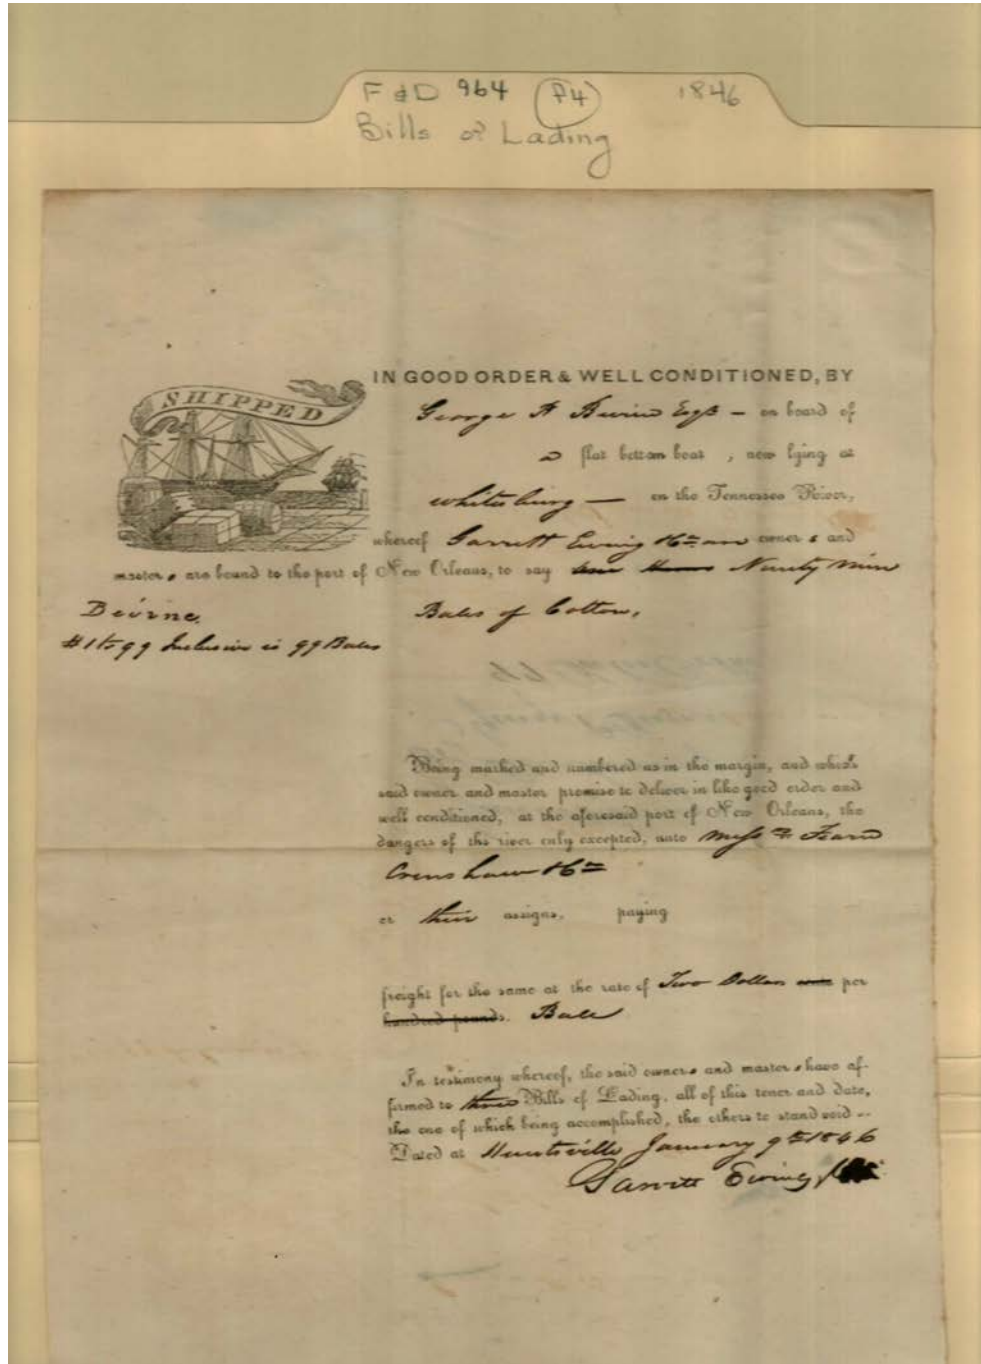 F&D 964 P4 1846
Bills of Lading
SHIPPED
IN GOOD ORDER & WELL CONDITIONED, BY
George P Beirne Esqr — on board of
a flat bottom boat , now lying at
Whitesburg — on the Tennessee River,
whereof Garrett Ewing &Co are owners and
masters are bound to the port of New Orleans, to say Ninety Nine
Beirne. Bales of Cotton.
#1 to 99 Inclusive is 99 Bales
Being marked and numbered as in the margin, and which
said owner and master promise to deliver in like good order and
well conditioned, at the aforesaid port of New Orleans, the
dangers of the river only excepted, unto Messrs Fearn
Crenshaw &Co
or their assigns, paying
freight for the same at the rate of Two Dollars per
hundred pounds. Bale
In testimony whereof, the said owners and masters have af-
firmed to three Bills of Lading, all of this tenor and date,
the one of which being accomplished, the others to stand void --
Dated at Huntsville January 9th 1846
Garrett Ewing